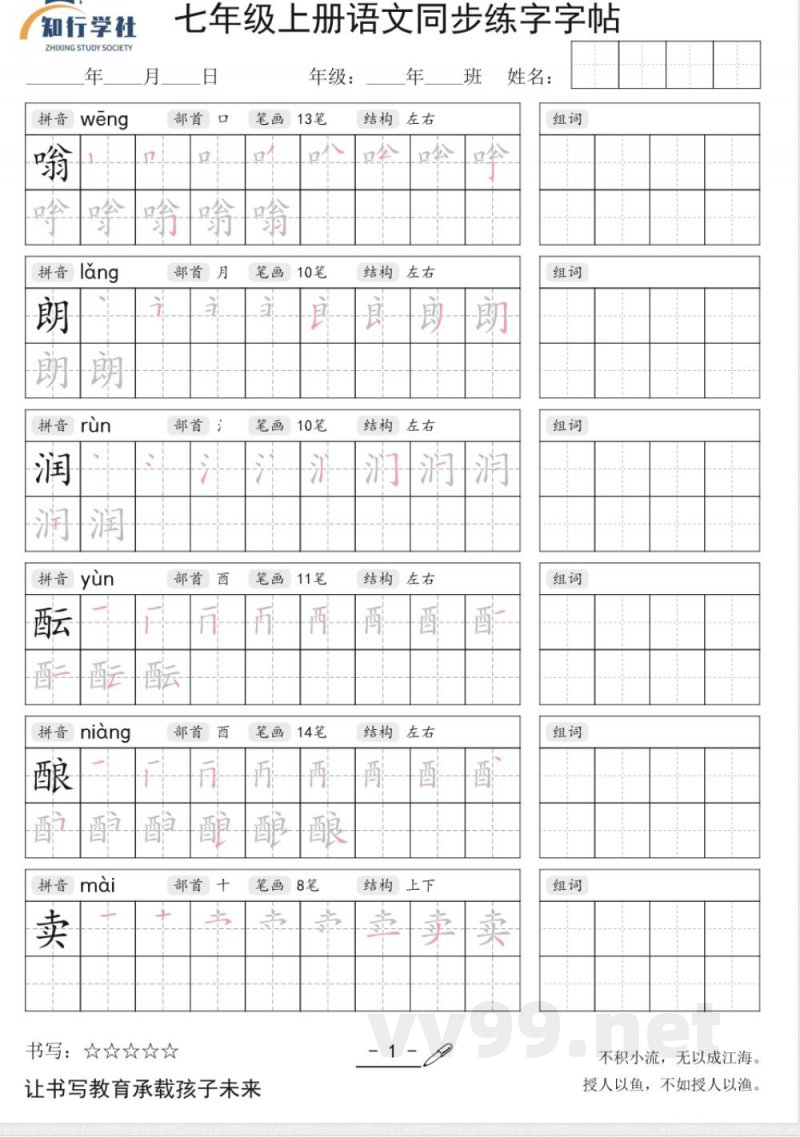 知行学社
ZHIXING STUDY SOCIETY
七年级上册语文同步练字字帖
______年____月____日 年级：____年____班 姓名：
拼音 wēng 部首 口 笔画 13笔 结构 左右 组词
嗡
拼音 lǎng 部首 月 笔画 10笔 结构 左右 组词
朗
朗 朗
拼音 rùn 部首 氵 笔画 10笔 结构 左右 组词
润
润 润
拼音 yùn 部首 酉 笔画 11笔 结构 左右 组词
酝
酝 酝
拼音 niàng 部首 酉 笔画 14笔 结构 左右 组词
酿
拼音 mài 部首 十 笔画 8笔 结构 上下 组词
卖
书写：☆☆☆☆☆
- 1 -
不积小流，无以成江海。
让书写教育承载孩子未来
授人以鱼，不如授人以渔。
vv99.net